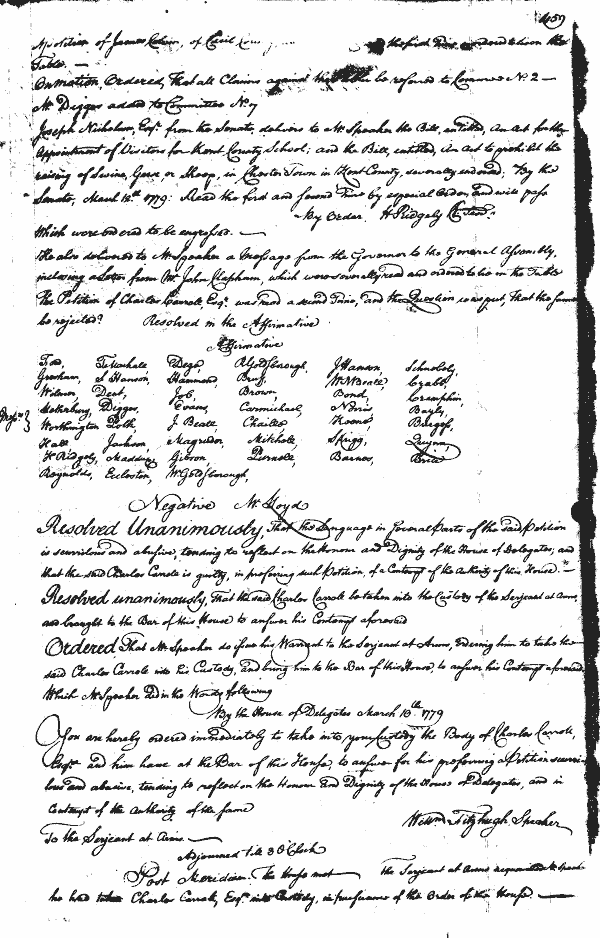 459
A petition of James Calvin, of Cecil the first time and ordered to lie on the
Table. —
On motion, Ordered, That all Claims against the be referred to Committee No. 2 —
Mr. Digges added to Committee No. 7
Joseph Nicholson, Esqr. from the Senate, delivers to Mr. Speaker the Bill, entitled, An Act for the
Appointment of Visitors for Kent County School; and the Bill, entitled, An Act to prohibit the
raising of Swine, Geese, or Sheep, in Chester Town in Kent County, severally endorsed; "By the
Senate, March 18th 1779: Read the first and second time by especial Order and will pass
"By Order, H Ridgely Cl. Sen."
Which were ordered to be engrossed. —
He also delivered to Mr. Speaker a Message from the Governor to the General Assembly,
inclosing a Letter from Mr. John Clapham, which were severally read and ordered to lie on the Table
The Petition of Charles Carroll, Esqr. was read a second time, and the Question was put, That the same
be rejected? Resolved in the Affirmative
Affirmative
Ford, Tekershale Dege, R Goldsborough, J. Hanson, Schnebely,
Gresham, S Hanson, Hammond, Bruff, W. M Beale, Crabb,
Wilmer, Dent, Job, Brown, Bond, Cresaphin,
McKerbury, Digges, Evans, Carmichael, Norris, Bayly,
Worthington Polk, J. Beall, Chaille, Keene, Burgess,
Hall Jackson, Magruder, Mitchell, Sprigg, Quynn,
H Ridgely, Maddux, Gibson Purnell, Barnes, Brice
Reynolds, Eccleston, W. Goldsborough,
Negative Mr. Lloyd
Resolved Unanimously, That the Language in several Parts of the said Petition
is scurrilous and abusive, tending to reflect on the Honour and Dignity of the House of Delegates; and
that the said Charles Carrole is guilty, in preferring such Petition, of a Contempt of the Authority of this House. —
Resolved unanimously, That the said Charles Carrole be taken into the Custody of the Serjeant at Arms,
and brought to the Bar of this House to answer his Contempt aforesaid
Ordered That Mr. Speaker do issue his Warrant to the Serjeant at Arms, ordering him to take the
said Charles Carrole into his Custody, and bring him to the Bar of this House, to answer his Contempt aforesaid
Which Mr. Speaker did in the Words following
By the House of Delegates March 18th 1779
You are hereby ordered immediately to take into your Custody the Body of Charles Carroll,
Esqr. and him have at the Bar of this House, to answer for his preferring a Petition scurri
lous and abusive, tending to reflect on the Honour and Dignity of the House of Delegates, and in
Contempt of the Authority of the same
Willm. Fitzhugh Speaker
To the Serjeant at Arms —
Adjourned till 3 O'Clock
Post Meridiem. The House met — the Serjeant at Arms acquainted Mr. Speaker
he had taken Charles Carroll, Esqr. into Custody, in pursuance of the Order of the House. —